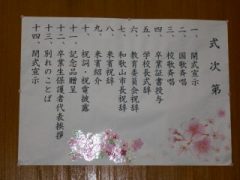 式次第
一、開式宣示
二、国歌斉唱
三、校歌斉唱
四、卒業証書授与
五、学校長式辞
六、教育委員会祝辞
七、和歌山市長祝辞
八、来賓祝辞
九、来賓紹介
十、祝詞・祝電披露
十一、記念品贈呈
十二、卒業生保護者代表挨拶
十三、別れのことば
十四、閉式宣示